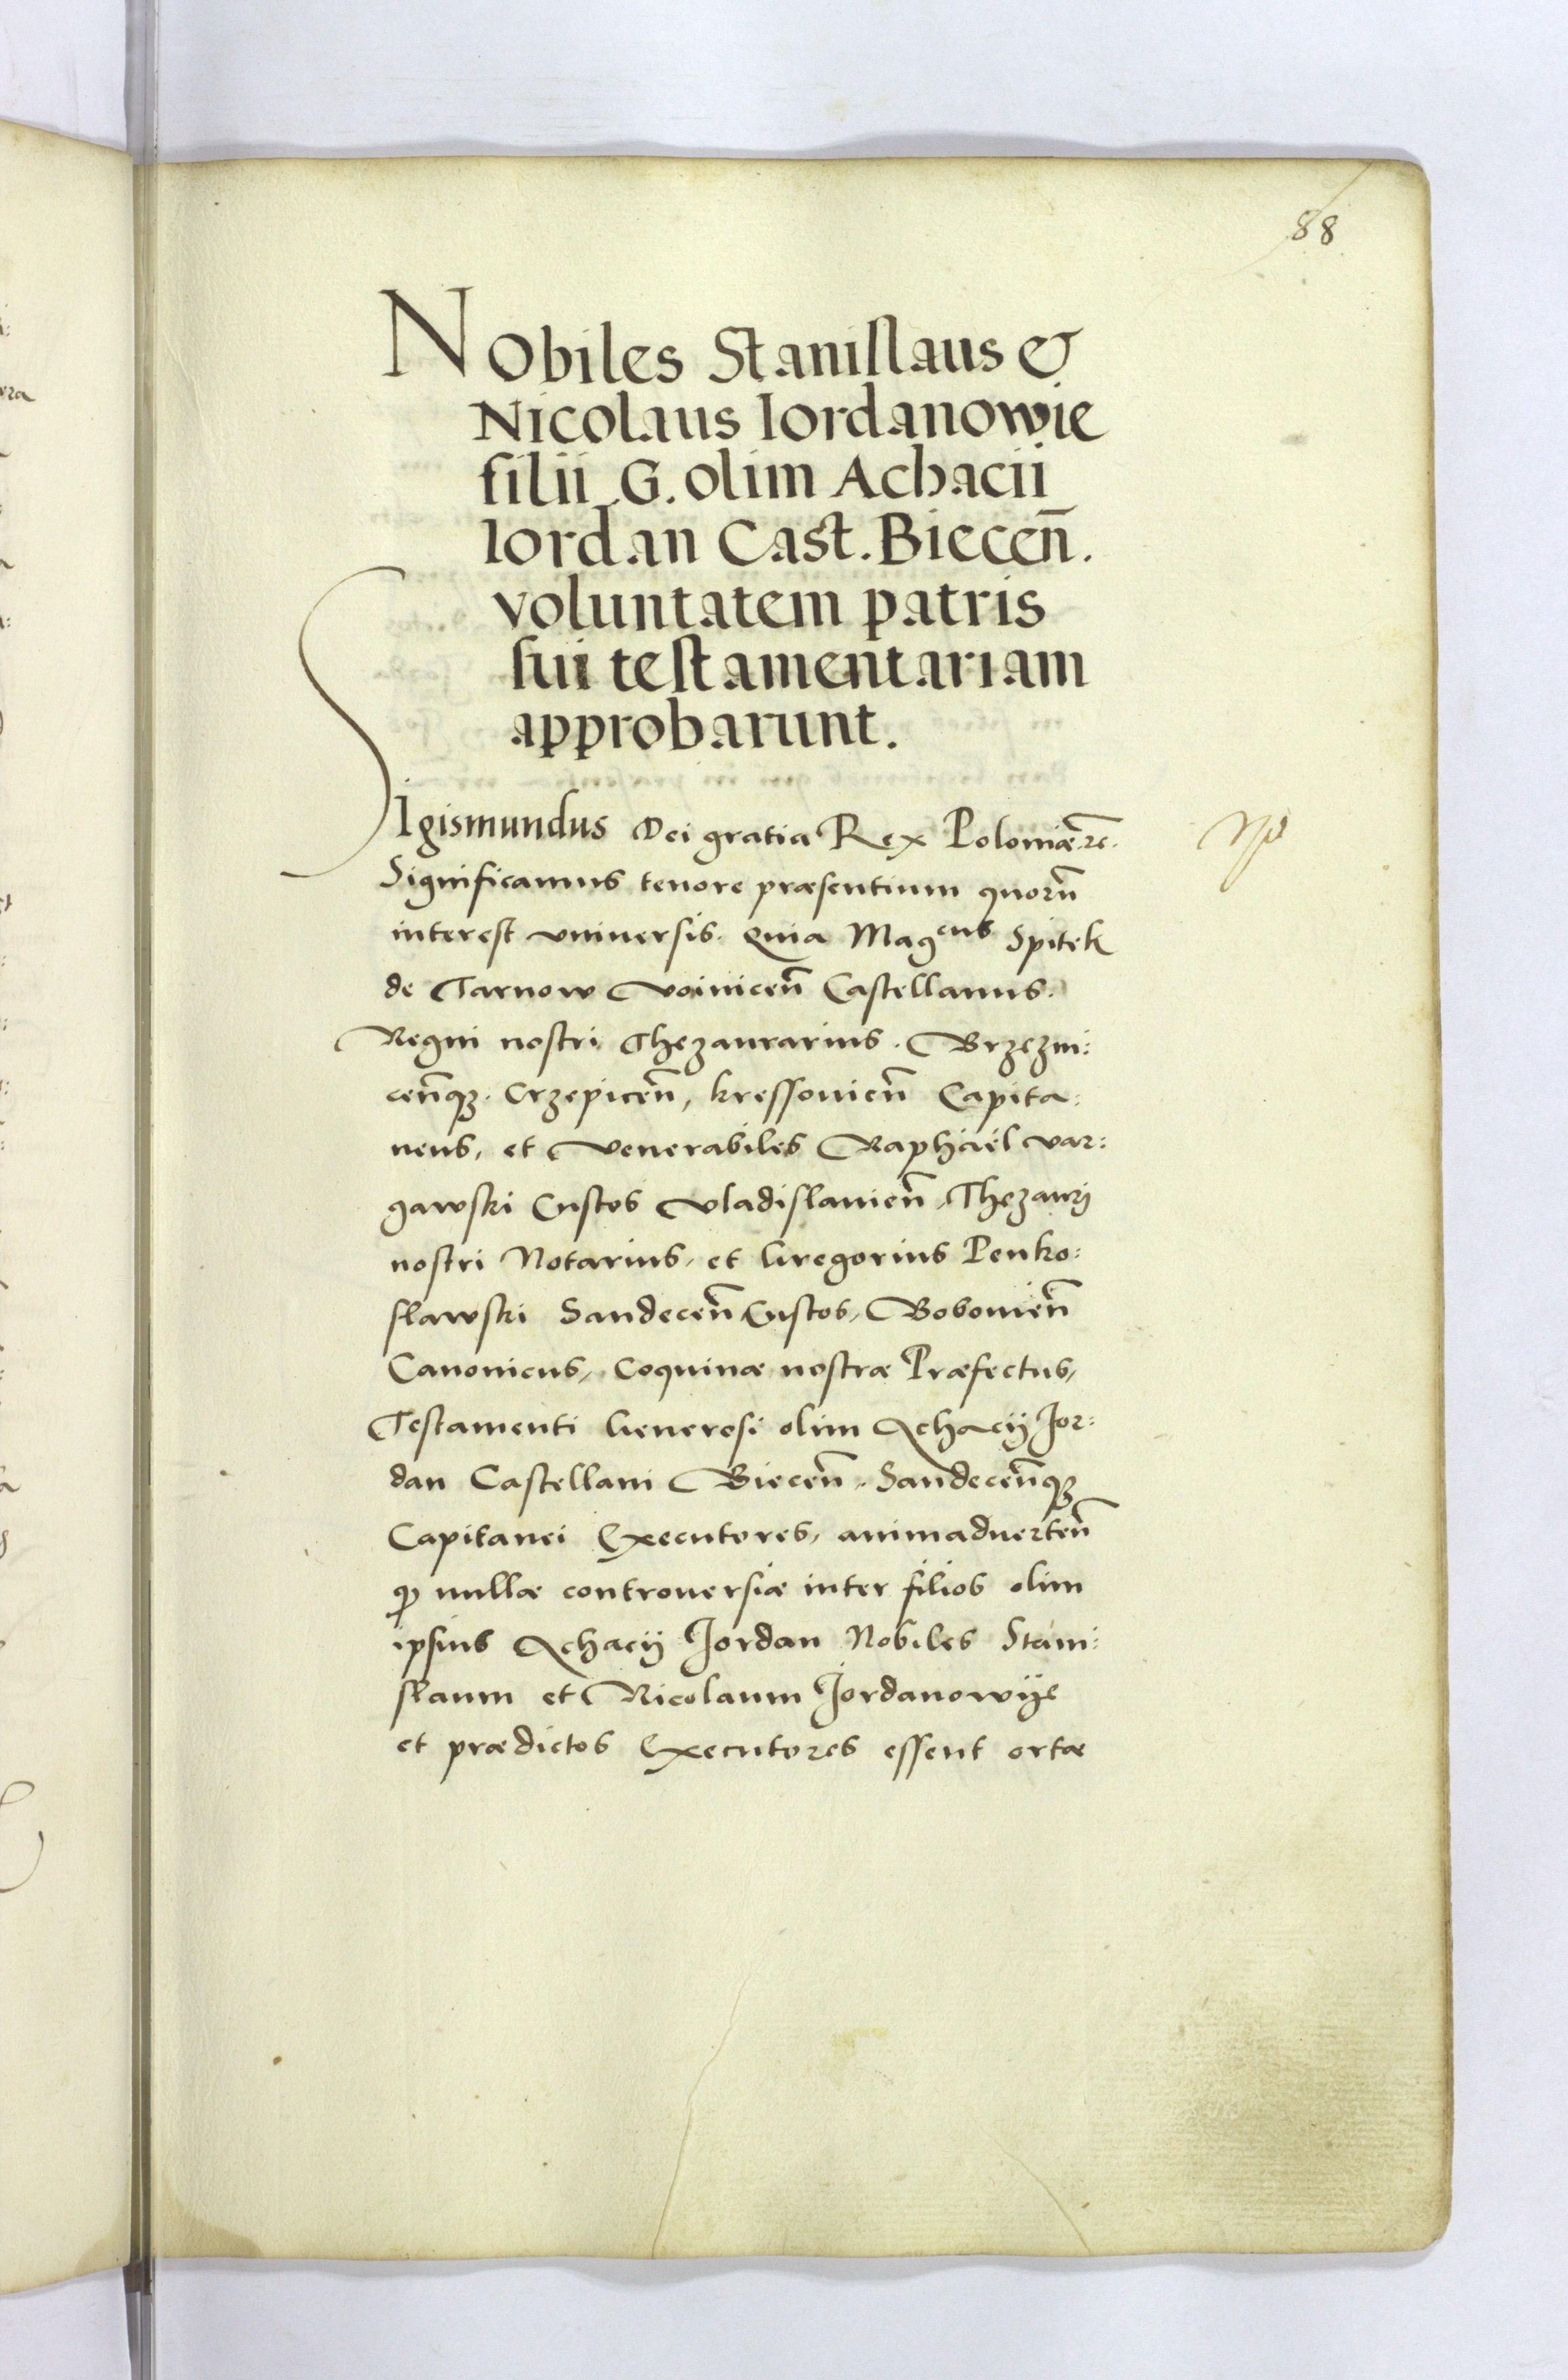 88
Nobiles Stanislaus &
Nicolaus Iordanowie
filii G. olim Achacii
Iordan Cast. Biecen̄.
voluntatem patris
sui testamentariam
approbarunt.
Sigismundus Dei gratia Rex Poloniæ ꝛc.
Significamus tenore præsentium quorū
interest vniuersis. Quia Magcus Spitek
de Tarnow Voinicen̄ Castellanus.
Regni nostri Thezaurarius. Brzezni:
cen̄qꝫ. Crzepicen̄, kressouien̄ Capita:
neus, et Venerabiles Raphael var:
gawski Custos Vladislauien̄, Thezauri
nostri Notarius, et Gregorius Penko:
slawski Sandecen̄ Custos, Bobouien̄
Canonicus, Coquinæ nostræ Præfectus,
Testamenti Generosi olim Achacij Jor:
dan Castellani Biecen̄, Sandecen̄qꝫ
Capitanei Executores, animaduerten̄
ꝙ nullæ controuersiæ inter filios olim
ipsius Achacij Jordan Nobiles Stani:
slaum et Nicolaum Jordanowije
et prædictos Executores essent ortæ